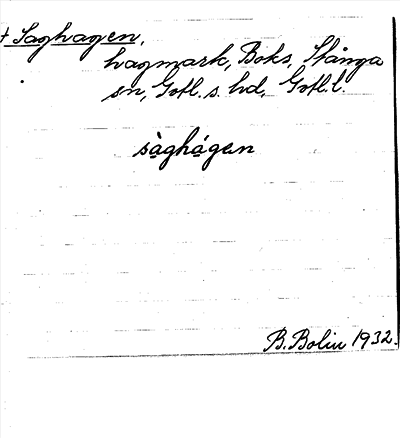 + Saghagen,
hagmark, Boks, Stånga
sn, Gotl. s. hd, Gotl. l.
sàghágen
B. Bolin 1932.